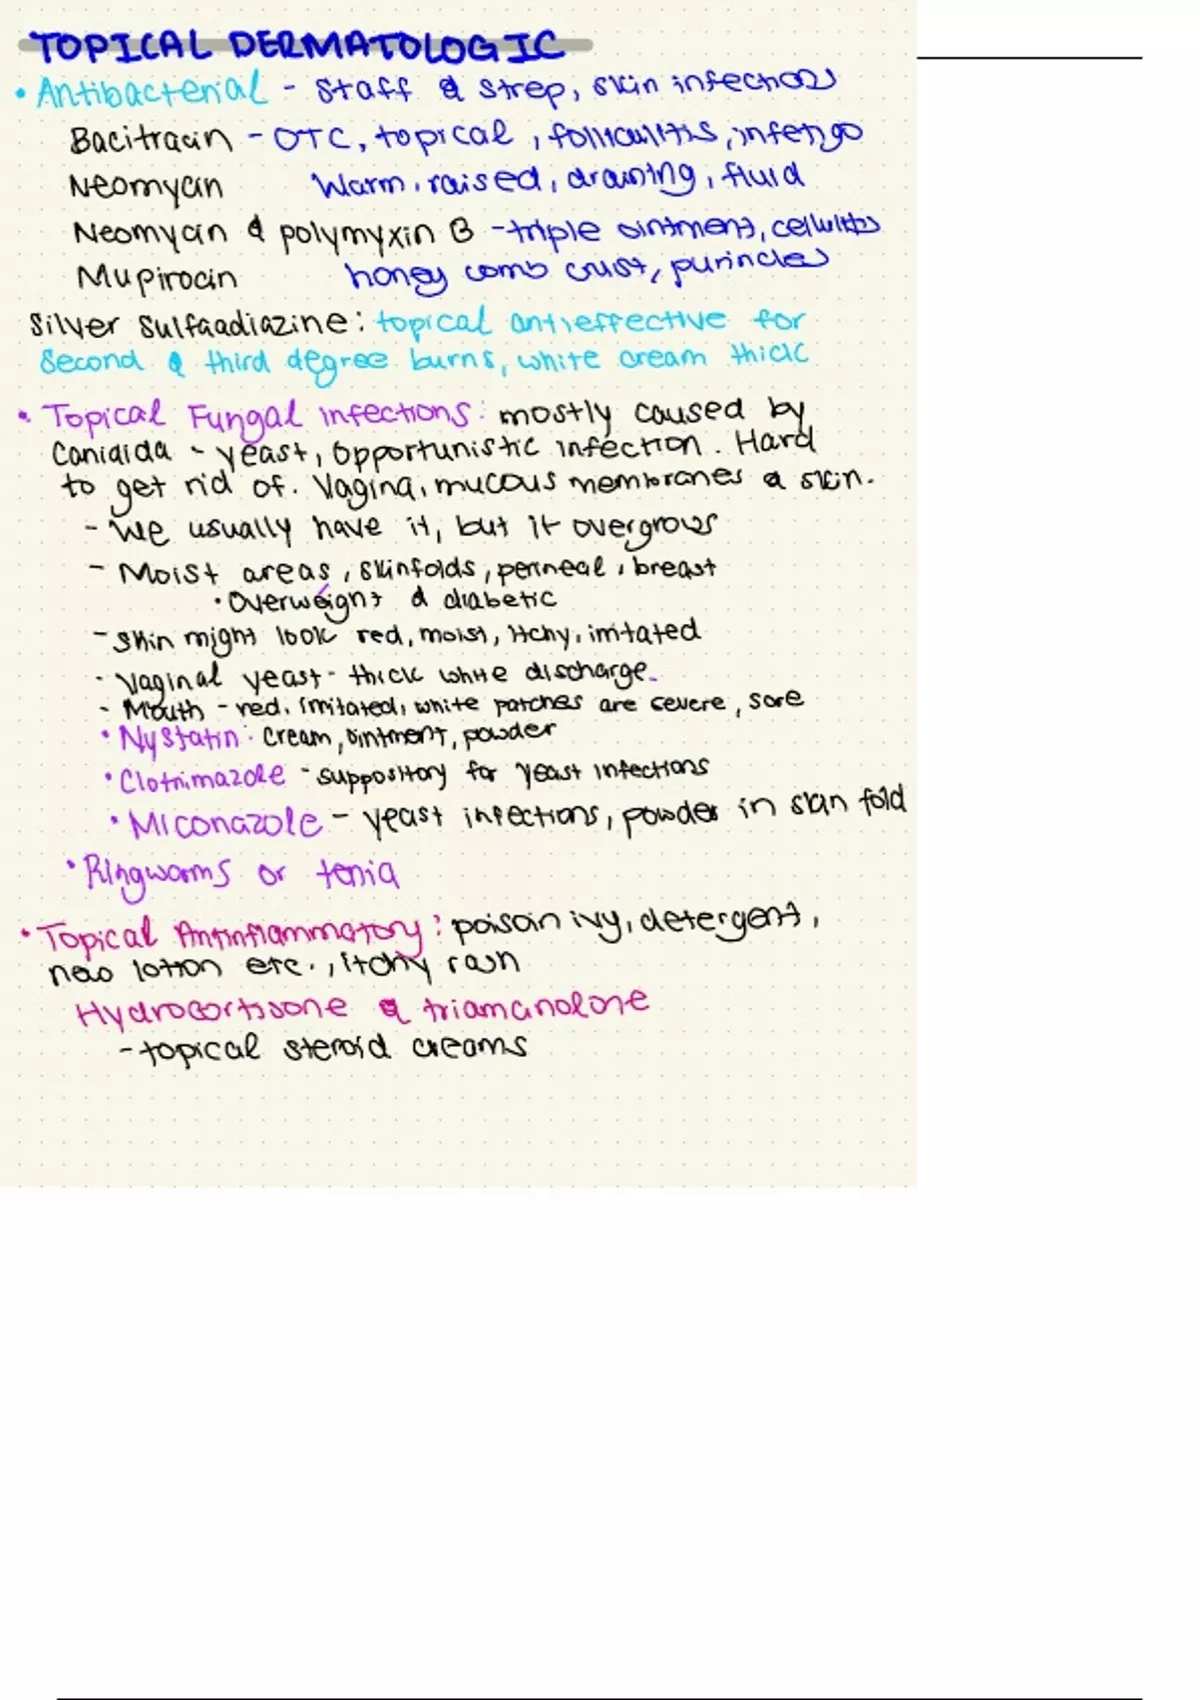 TOPICAL DERMATOLOGIC
• Antibacterial - Staff & strep, skin infections
Bacitracin - OTC, topical, folliculitis, infetigo
Neomycin Warm, raised, draining, fluid
Neomycin & polymyxin B - triple ointment, cellulitis
Mupirocin honey comb crust, purincles
Silver Sulfaadiazine: topical antieffective for
Second & third degree burns, white cream thick
• Topical Fungal infections: mostly caused by
Canidida - yeast, opportunistic infection. Hard
to get rid of. Vagina, mucous membranes & skin.
- We usually have it, but it overgrows
- Moist areas, skinfolds, perineal, breast
• Overweight & diabetic
- Skin might look red, moist, itchy, irritated
- Vaginal yeast - thick white discharge.
- Mouth - red, irritated, white patches are severe, sore
• Nystatin: cream, ointment, powder
• Clotrimazole - suppository for yeast infections
• Miconazole - yeast infections, powder in skin fold
• Ringworms or tenia
• Topical Antinflammatory: poison ivy, detergent,
new lotion etc., itchy rash
Hydrocortisone & triamcinolone
- topical steroid creams